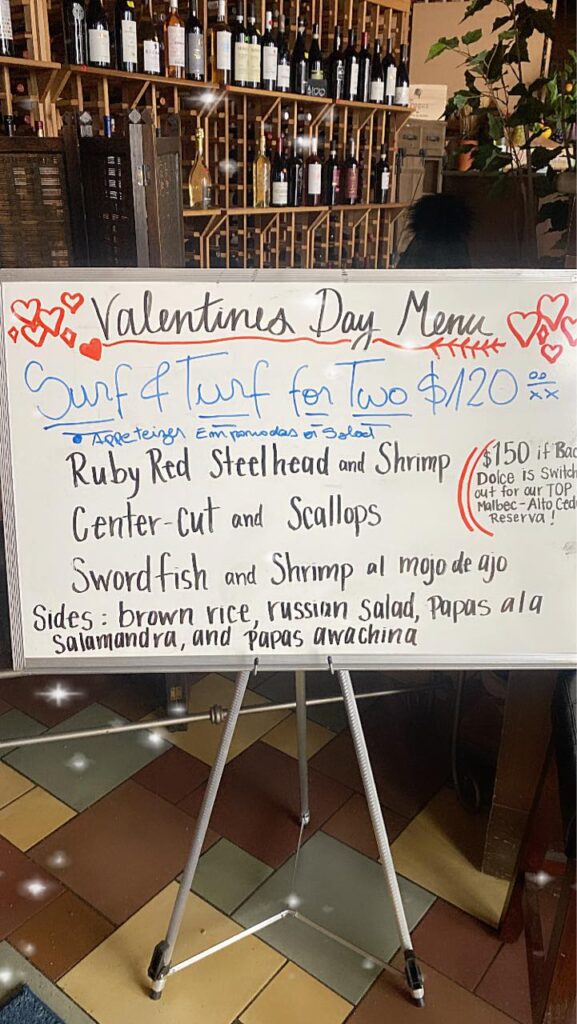 Valentines Day Menu
Surf & Turf for Two $120 00/xx
• Appeteizer Empanadas or Salad
Ruby Red Steelhead and Shrimp
Center-cut and Scallops
Swordfish and Shrimp al mojo de ajo
Sides: brown rice, russian salad, papas ala
salamandra, and papas awachina
$150 if
Dolce is
out for our TOP
Malbec-Alto
Reserva!